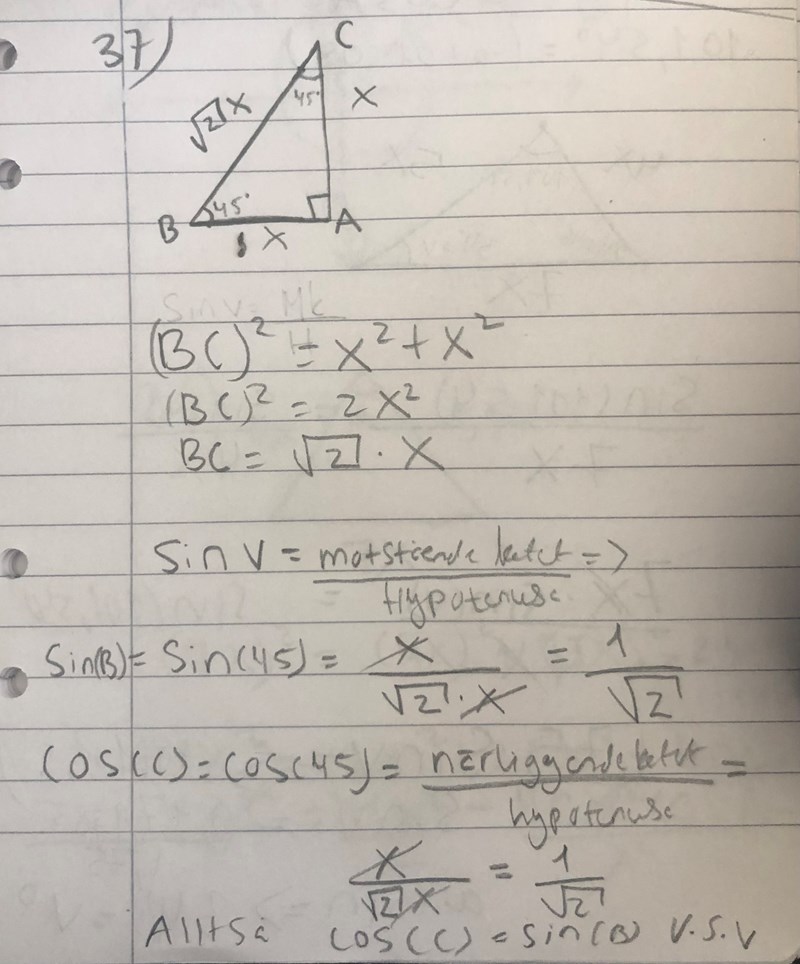 37)
C
√2 X
45°
X
B
45°
A
X
Sin v = Mk
(BC)² = X² + X²
(BC)² = 2X²
BC = √2 · X
Sin V = motstående katet / Hypotenuse =>
Sin(B) = Sin(45) = X / √2 · X = 1 / √2
COS(C) = COS(45) = nærliggende katet / hypotenuse =
X / √2 X = 1 / √2
Alltså COS(C) = sin(B) V.S.V